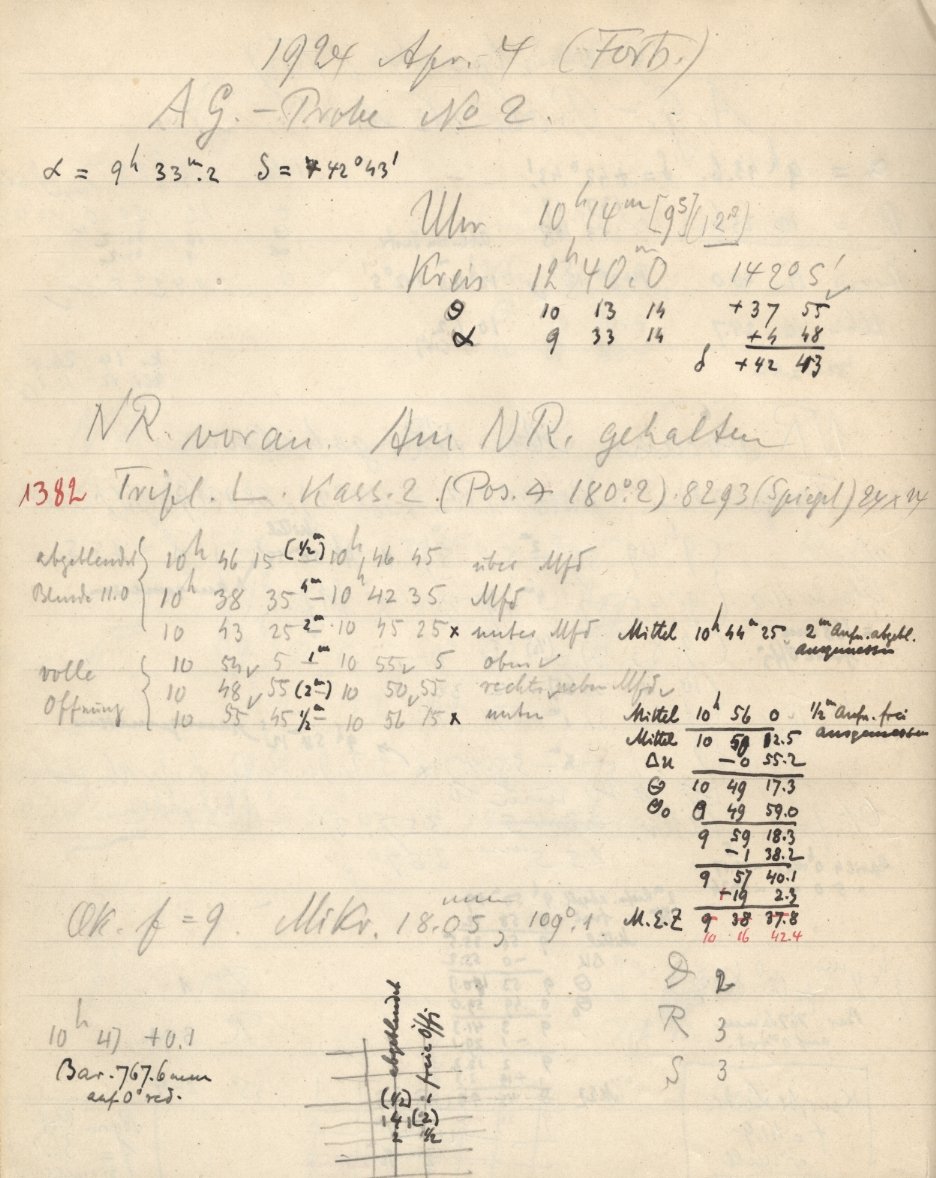 1924 Apr. 4 (Forts.)
A G. - Probe No 2.
α = 9h 33m.2 δ = +42° 43'
Uhr 10h 14m [9s] (12s)
Kreis 12h 40m.0 142° 5'
θ 10 13 14 +37 55
α 9 33 14 +4 48
δ +42 43
NR. voran. Am NR. gehalten
1382 Tripl. L. Kass. 2 (Pos. ∡ 180°.2) . 8293 (Spiegel) 24 x 24
abgeblendet Blende 11.0
10h 46 15 (1/2m) 10h 46 45 über Mfd
10h 38 35 4m - 10h 42 35 Mfd
10 43 25 2m - 10 45 25 x unter Mfd Mittel 10h 44m 25 2m Aufn. abgebl. ausgemessen
volle Öffnung
10 54 5 1m 10 55 5 oben
10 48 55 (2m) 10 50 55 rechts neben Mfd
10 55 45 1/2m - 10 56 15 x unten Mittel 10h 56 0 1/2m Aufn. frei ausgemessen
Mittel 10 50 12.5
Δu -0 55.2
θ 10 49 17.3
θ₀ 0 49 59.0
9 59 18.3
-1 38.2
9 57 40.1
-19 2.3
Ok. f = 9 Mikr. 18.05 mm, 109°.1 M.E.Z 9 38 37.8
10 16 42.4
D 2
R 3
S 3
10h 47 +0.1
Bar. 767.6 mm
auf 0° red.
abgeblendet freie Öff.
(1/2) 1
4 (2)
2 1/2